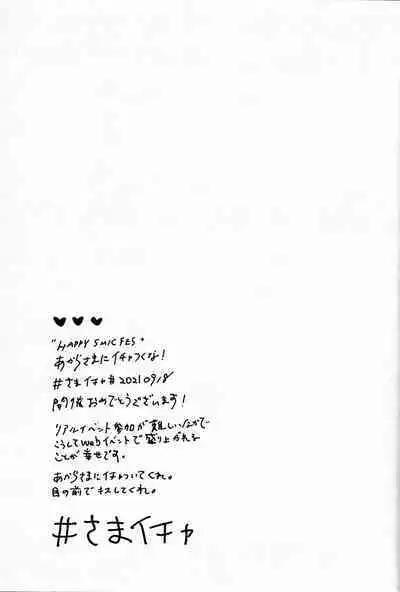 "HAPPY SMIC FES"
あからさまにイチャつくな!
#さまイチャ# 20210918
開催おめでとうございます!
リアルイベント参加が難しいなかで
こうしてWebイベントで盛り上がれる
ことが幸せです。
あからさまにイチャついてくれ。
目の前でキスしてくれ。
#さまイチャ